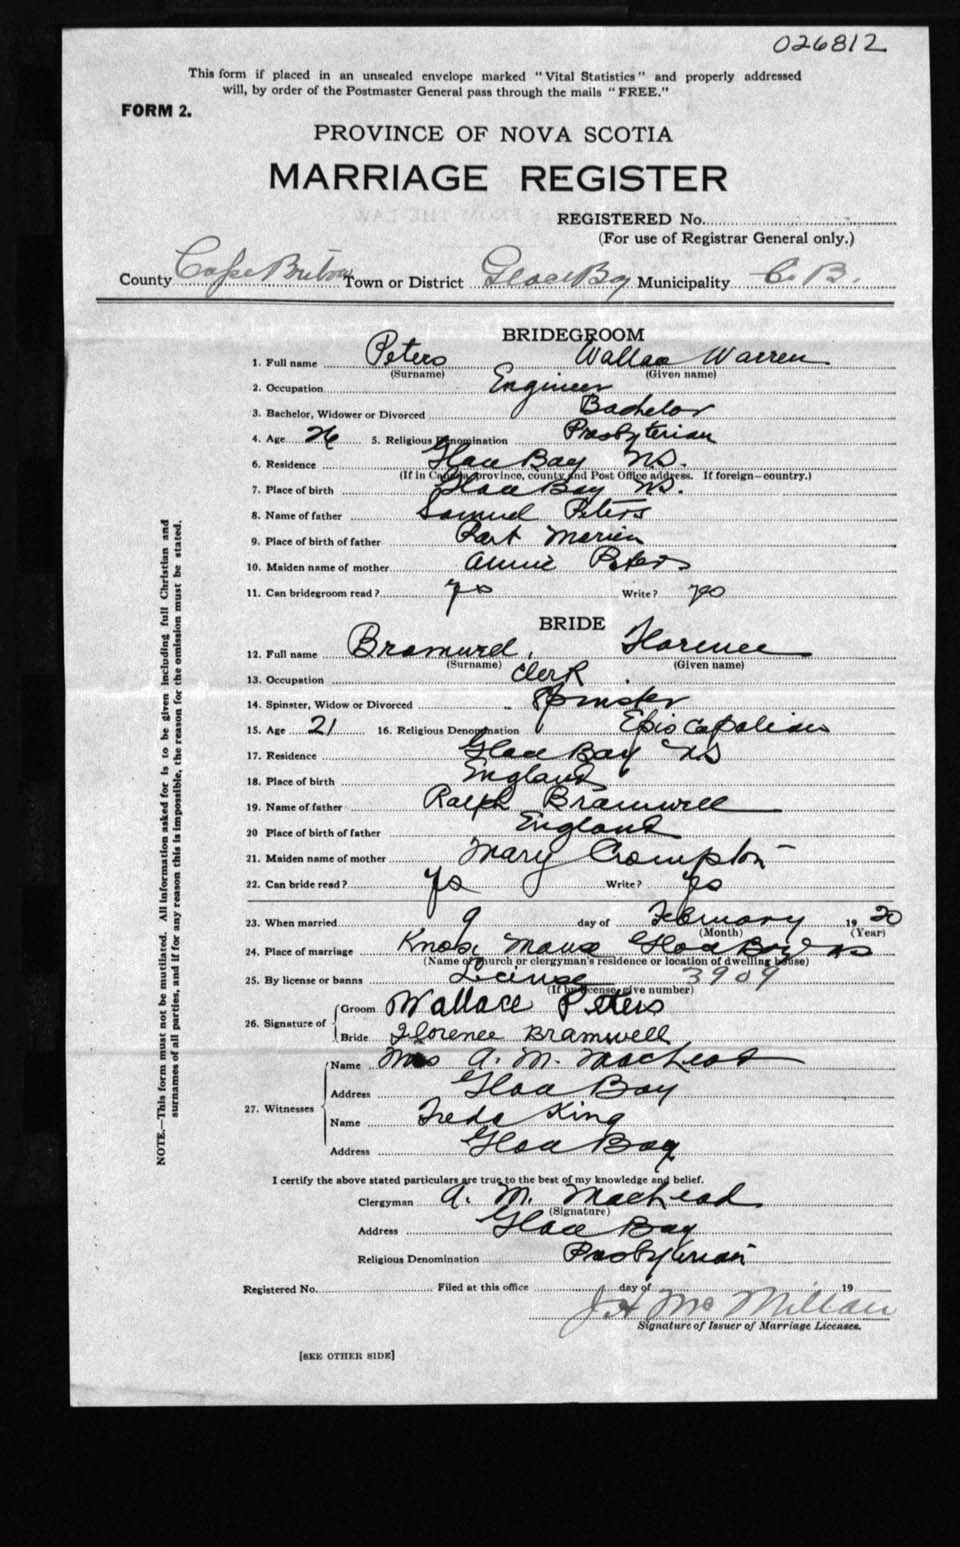 026812
This form if placed in an unsealed envelope marked "Vital Statistics" and properly addressed
will, by order of the Postmaster General pass through the mails "FREE."
FORM 2.
PROVINCE OF NOVA SCOTIA
MARRIAGE REGISTER
REGISTERED No.
(For use of Registrar General only.)
County Cape Breton Town or District Glace Bay Municipality C. B.
BRIDEGROOM
1. Full name Peters Wallace Warren
(Surname) (Given name)
2. Occupation Engineer
3. Bachelor, Widower or Divorced Bachelor
4. Age 26 5. Religious Denomination Presbyterian
6. Residence Glace Bay N.S.
(If in Canada, province, county and Post Office address. If foreign—country.)
7. Place of birth Glace Bay N.S.
8. Name of father Samuel Peters
9. Place of birth of father Port Morien
10. Maiden name of mother Annie Peters
11. Can bridegroom read? yes Write? yes
BRIDE
12. Full name Bramwel, Florence
(Surname) (Given name)
13. Occupation Clerk
14. Spinster, Widow or Divorced Spinster
15. Age 21 16. Religious Denomination Episcopalian
17. Residence Glace Bay NS
18. Place of birth England
19. Name of father Ralph Bramwell
20 Place of birth of father England
21. Maiden name of mother Mary Crompton
22. Can bride read? yes Write? yes
23. When married 9 day of February 1920
(Month) (Year)
24. Place of marriage Knox Manse Glace Bay NS
(Name of church or clergyman's residence or location of dwelling house)
25. By license or banns License 3909
(If by license, give number)
26. Signature of Groom Wallace Peters
Bride Florence Bramwell
27. Witnesses Name Mrs A. M. MacLeod
Address Glace Bay
Name Freda King
Address Glace Bay
I certify the above stated particulars are true to the best of my knowledge and belief.
Clergyman A. M. MacLeod
(Signature)
Address Glace Bay
Religious Denomination Presbyterian
Registered No. Filed at this office day of 19
J H McMillan
Signature of Issuer of Marriage Licenses.
[SEE OTHER SIDE]
NOTE.—This form must not be mutilated. All information asked for is to be given including full Christian and
surnames of all parties, and if for any reason this is impossible, the reason for the omission must be stated.